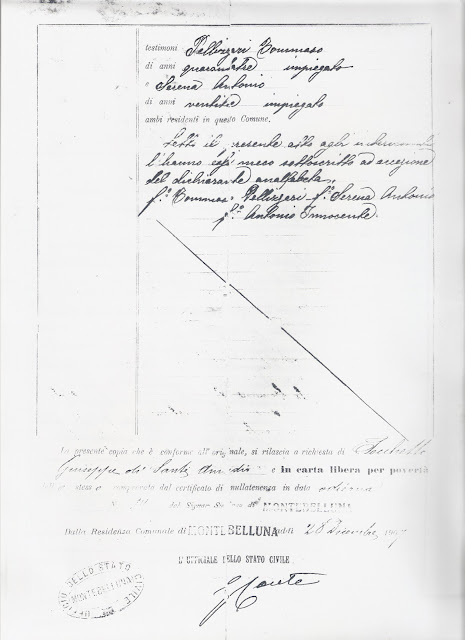 testimoni Pellizzari Tommaso
di anni quarantatre impiegato
e Serena Antonio
di anni ventitre impiegato
ambi residenti in questo Comune.
Letto il presente atto agli intervenuti
l'hanno essi meco sottoscritto ad eccezione
del dichiarante analfabeta.
f.º Tommaso Pellizzari f.º Serena Antonio
f.º Antonio Innocente.
La presente copia che è conforme all'originale, si rilascia a richiesta di
Giuseppe di Sante e in carta libera per povertà
comprovata dal certificato di nullatenenza in data odierna
N. del Signor Sindaco di MONTEBELLUNA
Dalla Residenza Comunale di MONTEBELLUNA addì 28 Dicembre
L'UFFICIALE DELLO STATO CIVILE
UFFICIO DELLO STATO CIVILE
MONTEBELLUNA